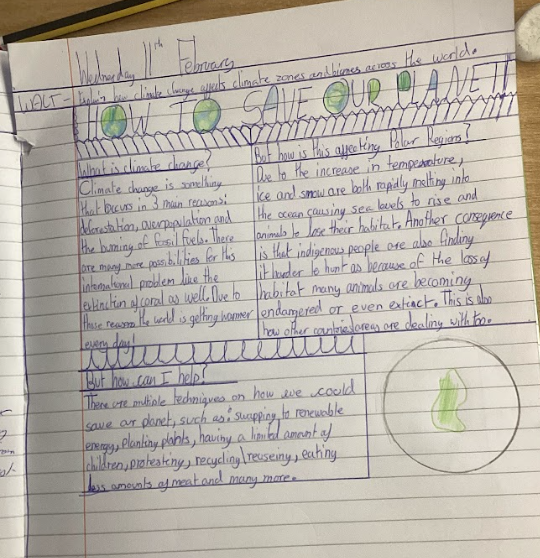 Wednesday 11th February
WALT - Explain how climate change affects climate zones and biomes across the world.
HOW TO SAVE OUR PLANET!!
What is climate change?
Climate change is something
that occurs in 3 main reasons:
deforestation, overpopulation and
the burning of fossil fuels. There
are many more possibilities for this
international problem like the
extinction of coral as well. Due to
these reasons the world is getting warmer
every day!
But how is this affecting Polar Regions?
Due to the increase in temperature,
ice and snow are both rapidly melting into
the ocean causing sea levels to rise and
animals to lose their habitat. Another consequence
is that indigenous people are also finding
it harder to hunt as because of the loss of
habitat many animals are becoming
endangered or even extinct. This is also
how other areas are dealing with too.
But how can I help?
There are multiple techniques on how we could
save our planet, such as: swapping to renewable
energy, planting plants, having a limited amount of
children, protesting, recycling\reuseing, eating
less amounts of meat and many more.